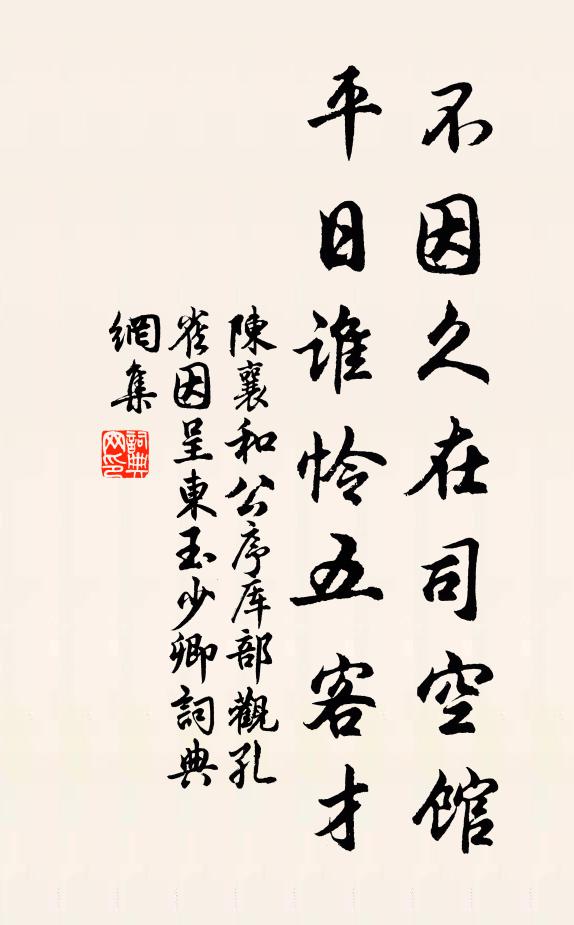 不因久在司空館
平日誰怜五客才
陳襄和公序库部觀孔
雀因呈東玉少卿詞典
網集
詞典
网印